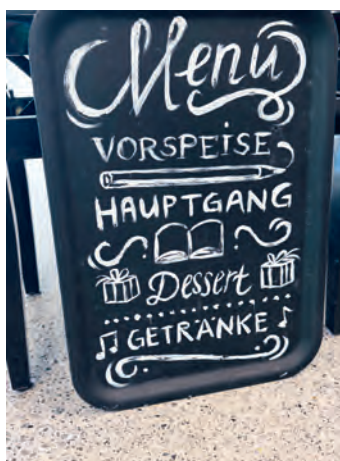 Menü
VORSPEISE
HAUPTGANG
Dessert
GETRÄNKE